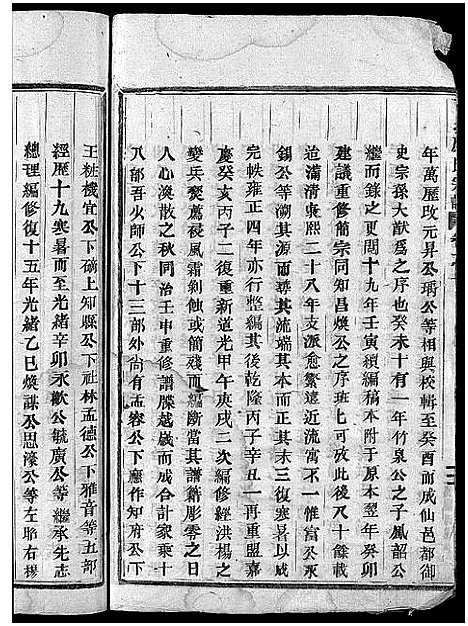 年萬歷改元昇公瑀公等相與校輯至癸酉而成仙邑都御
史宗孫大猷爲之序也癸未十有一年竹泉公之子鳳韶公
繼而錄之更閱十九年壬寅續編稿本附于原本翌年癸卯
建議重修簡宗同知昌煥公之序班七可放此後八十餘載
迨滿清康熙二十八年支派愈繁遠近流寓不一惟富公永
錫公等溯其源而尋其流端其本而正其末三復寒暑以成
完帙雍正四年亦行整編其後乾隆丙子辛丑一再重盟嘉
慶癸亥丙子二復重新道光甲午庚戌二次編修經洪楊之
變兵燹薦祲風霜剝蝕或簡殘而編斷當其譜籍彫零之日
人心渙散之秋同治壬申重修譜牒越歲而成合計家乘十
八部吾火師公下十三部外尚有孟容公下應作知府公下
王桩機宜公下磡上知縣公下社林孟德公下雅音等五部
經歷十九寒暑而至光緒辛卯永歡公毓廣公等繼承先志
總理編修復十五年光緒乙巳煥謀公思濠公等左昭右穆